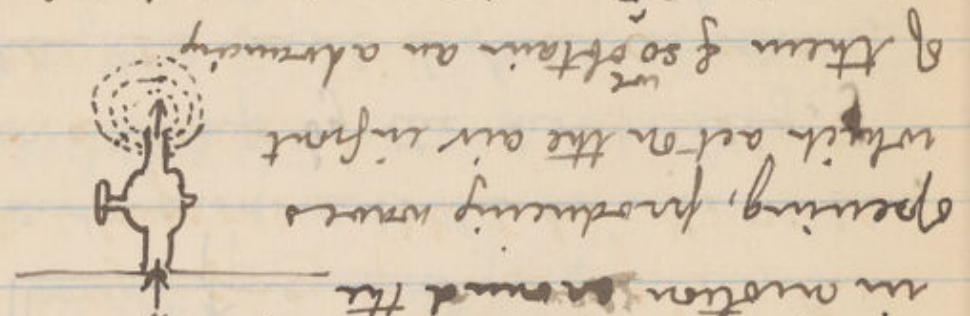 in motion around the
opening, producing waves
which act on the air infront
of them & so we obtain an advancing